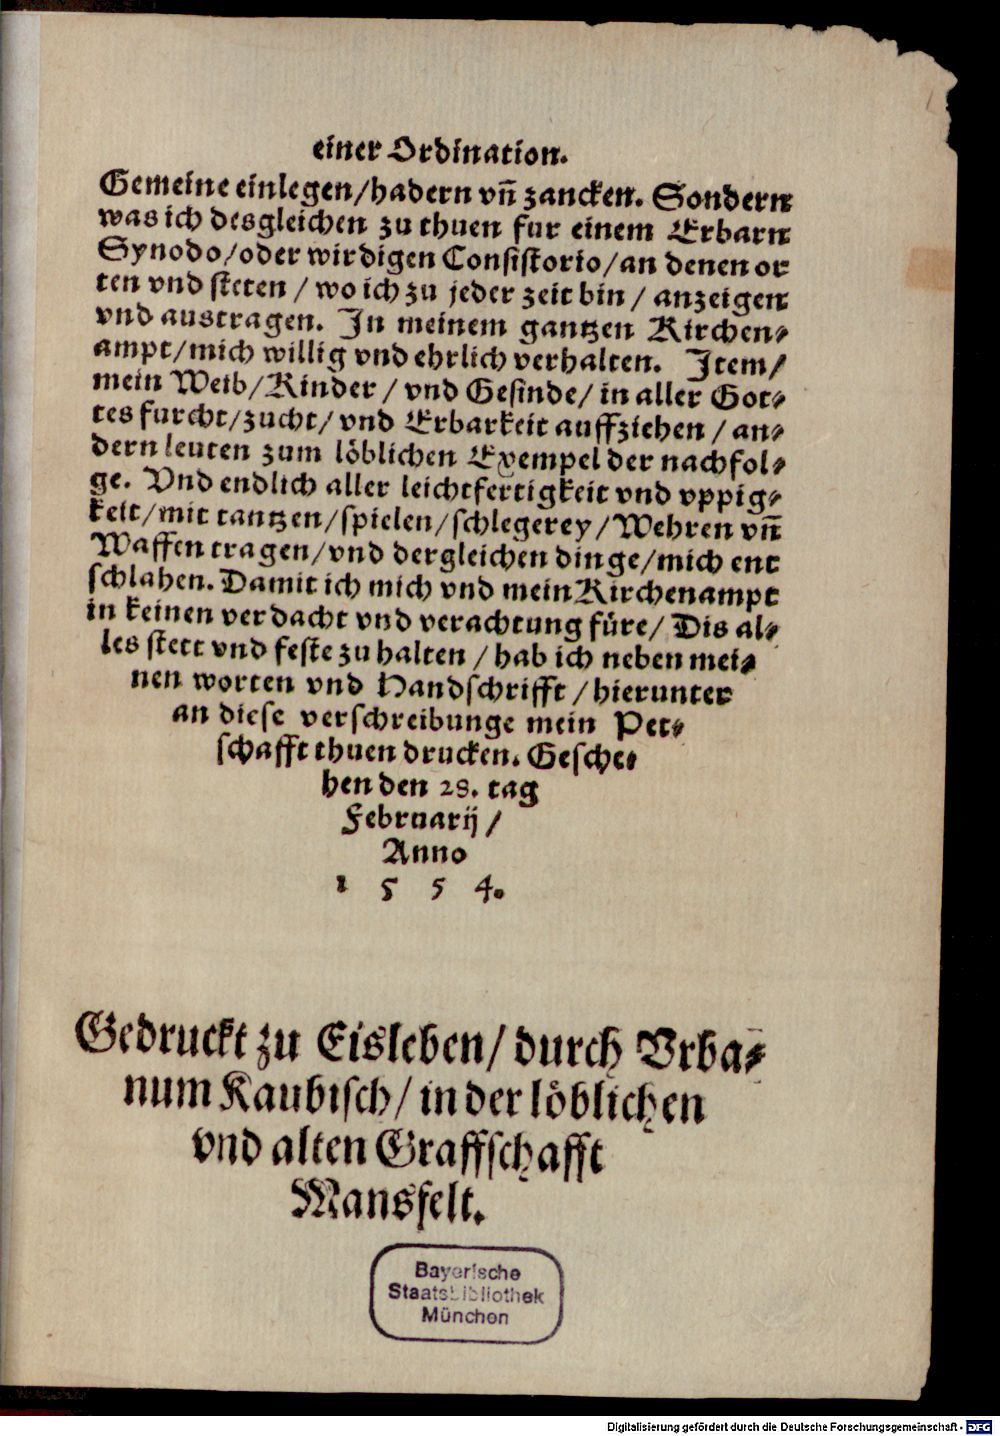 einer Ordination.
Gemeine einlegen/hadern vñ zancken. Sondern
was ich desgleichen zu thuen fur einem Erbarn
Synodo/oder wirdigen Consistorio/an denen or
ten vnd steten / wo ich zu jeder zeit bin / anzeigen
vnd austragen. In meinem gantzen Kirchen⸗
ampt/mich willig vnd ehrlich verhalten. Item/
mein Weib/Kinder / vnd Gesinde/ in aller Got⸗
tes furcht/zucht/ vnd Erbarkeit auffziehen / an⸗
dern leuten zum löblichen Exempel der nachfol⸗
ge. Vnd endlich aller leichtfertigkeit vnd vppig⸗
keit/mit tantzen/spielen/schlegerey/Wehren vñ
Waffen tragen/vnd dergleichen dinge/mich ent
schlahen. Damit ich mich vnd mein Kirchenampt
in keinen verdacht vnd verachtung füre/ Dis al⸗
les stett vnd feste zu halten / hab ich neben mei⸗
nen worten vnd Handschrifft / hierunter
an diese verschreibunge mein Pet⸗
schafft thuen drucken. Gesche⸗
hen den 28. tag
Februarij /
Anno
1 5 5 4.
Gedruckt zu Eisleben/ durch Vrba⸗
num Kaubisch/ in der löblichen
vnd alten Graffschafft
Mansfelt.
Bayerische
Staatsbibliothek
München
Digitalisierung gefördert durch die Deutsche Forschungsgemeinschaft - DFG